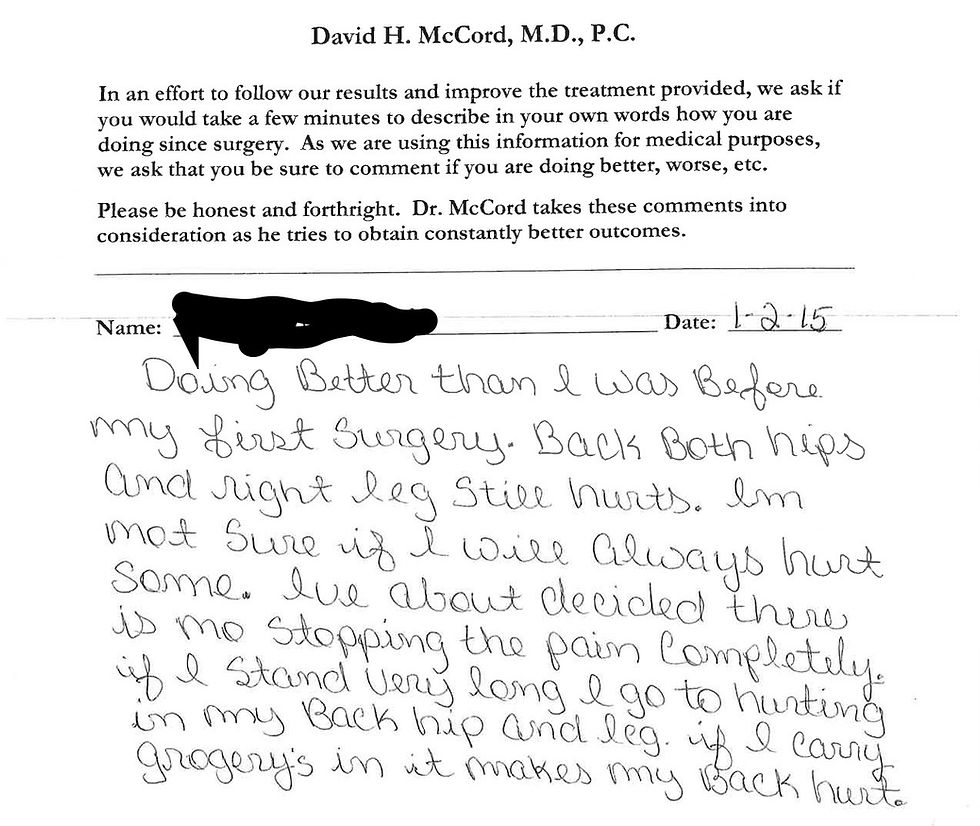 David H. McCord, M.D., P.C.
In an effort to follow our results and improve the treatment provided, we ask if
you would take a few minutes to describe in your own words how you are
doing since surgery. As we are using this information for medical purposes,
we ask that you be sure to comment if you are doing better, worse, etc.
Please be honest and forthright. Dr. McCord takes these comments into
consideration as he tries to obtain constantly better outcomes.
Name: Date: 1-2-15
Doing Better than I was Before
my first Surgery. Back Both hips
and right leg Still hurts. Im
not Sure if I will always hurt
Some. Ive about decided there
is no Stopping the pain Completely.
if I Stand Very long I go to hurting
in my Back hip and leg. if I carry
grogery's in it makes my Back hurt.